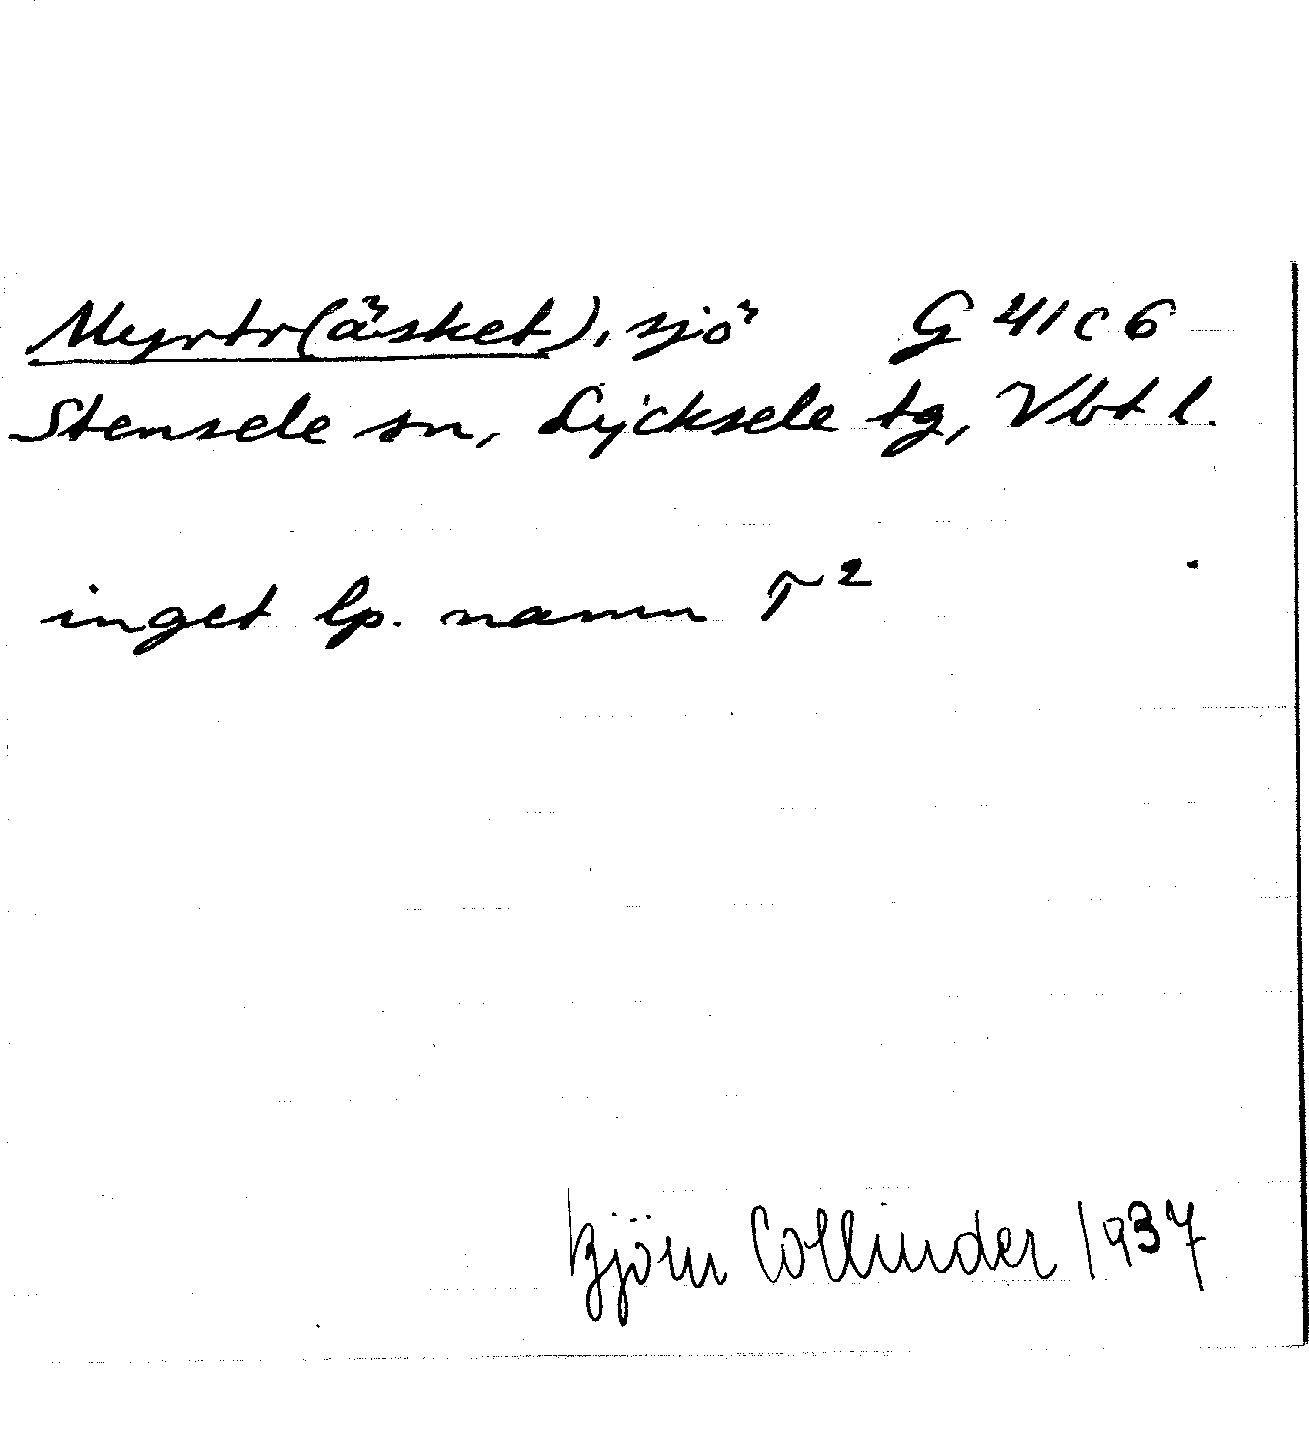 Myrtr(äsket), sjö G 41 c 6
Stensele sn, Lycksele tg, Vbt l.
inget lp. namn T²
Björn Collinder 1937